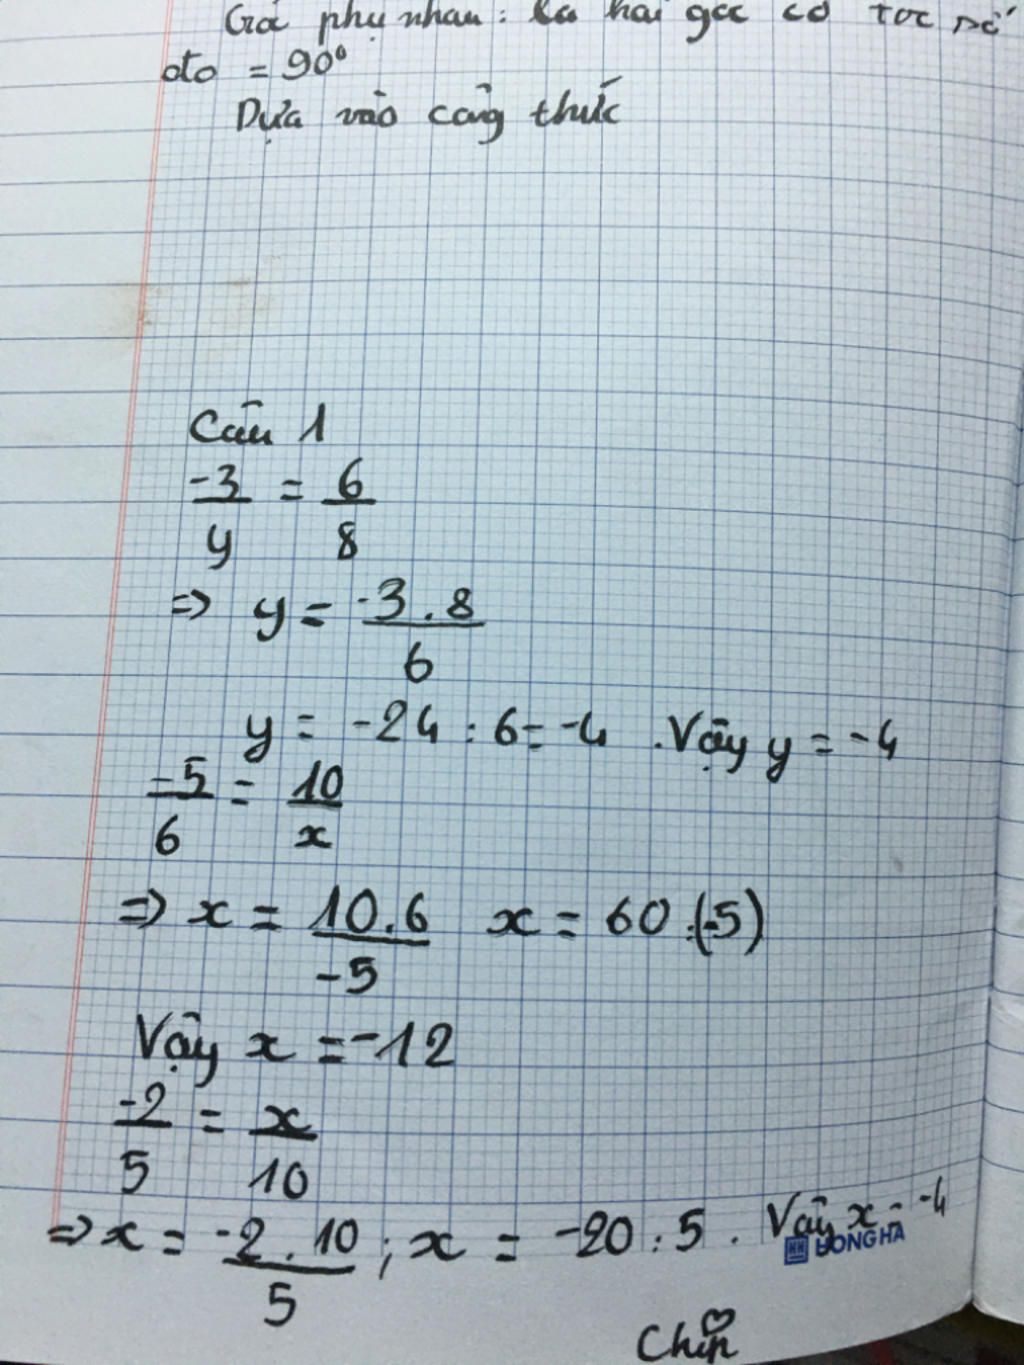 Góc phụ nhau: là hai góc có tổc số
đo = 90⁰
Dựa vào công thức
Câu 1
-3/y = 6/8
=> y = -3.8/6
y = -24 : 6 = -4 . Vậy y = -4
-5/6 = 10/x
=> x = 10.6/-5 x = 60 :(-5)
Vậy x = -12
-2/5 = x/10
=> x = -2.10/5 ; x = -20 : 5 . Vậy x = -4
HONG HA
Chin